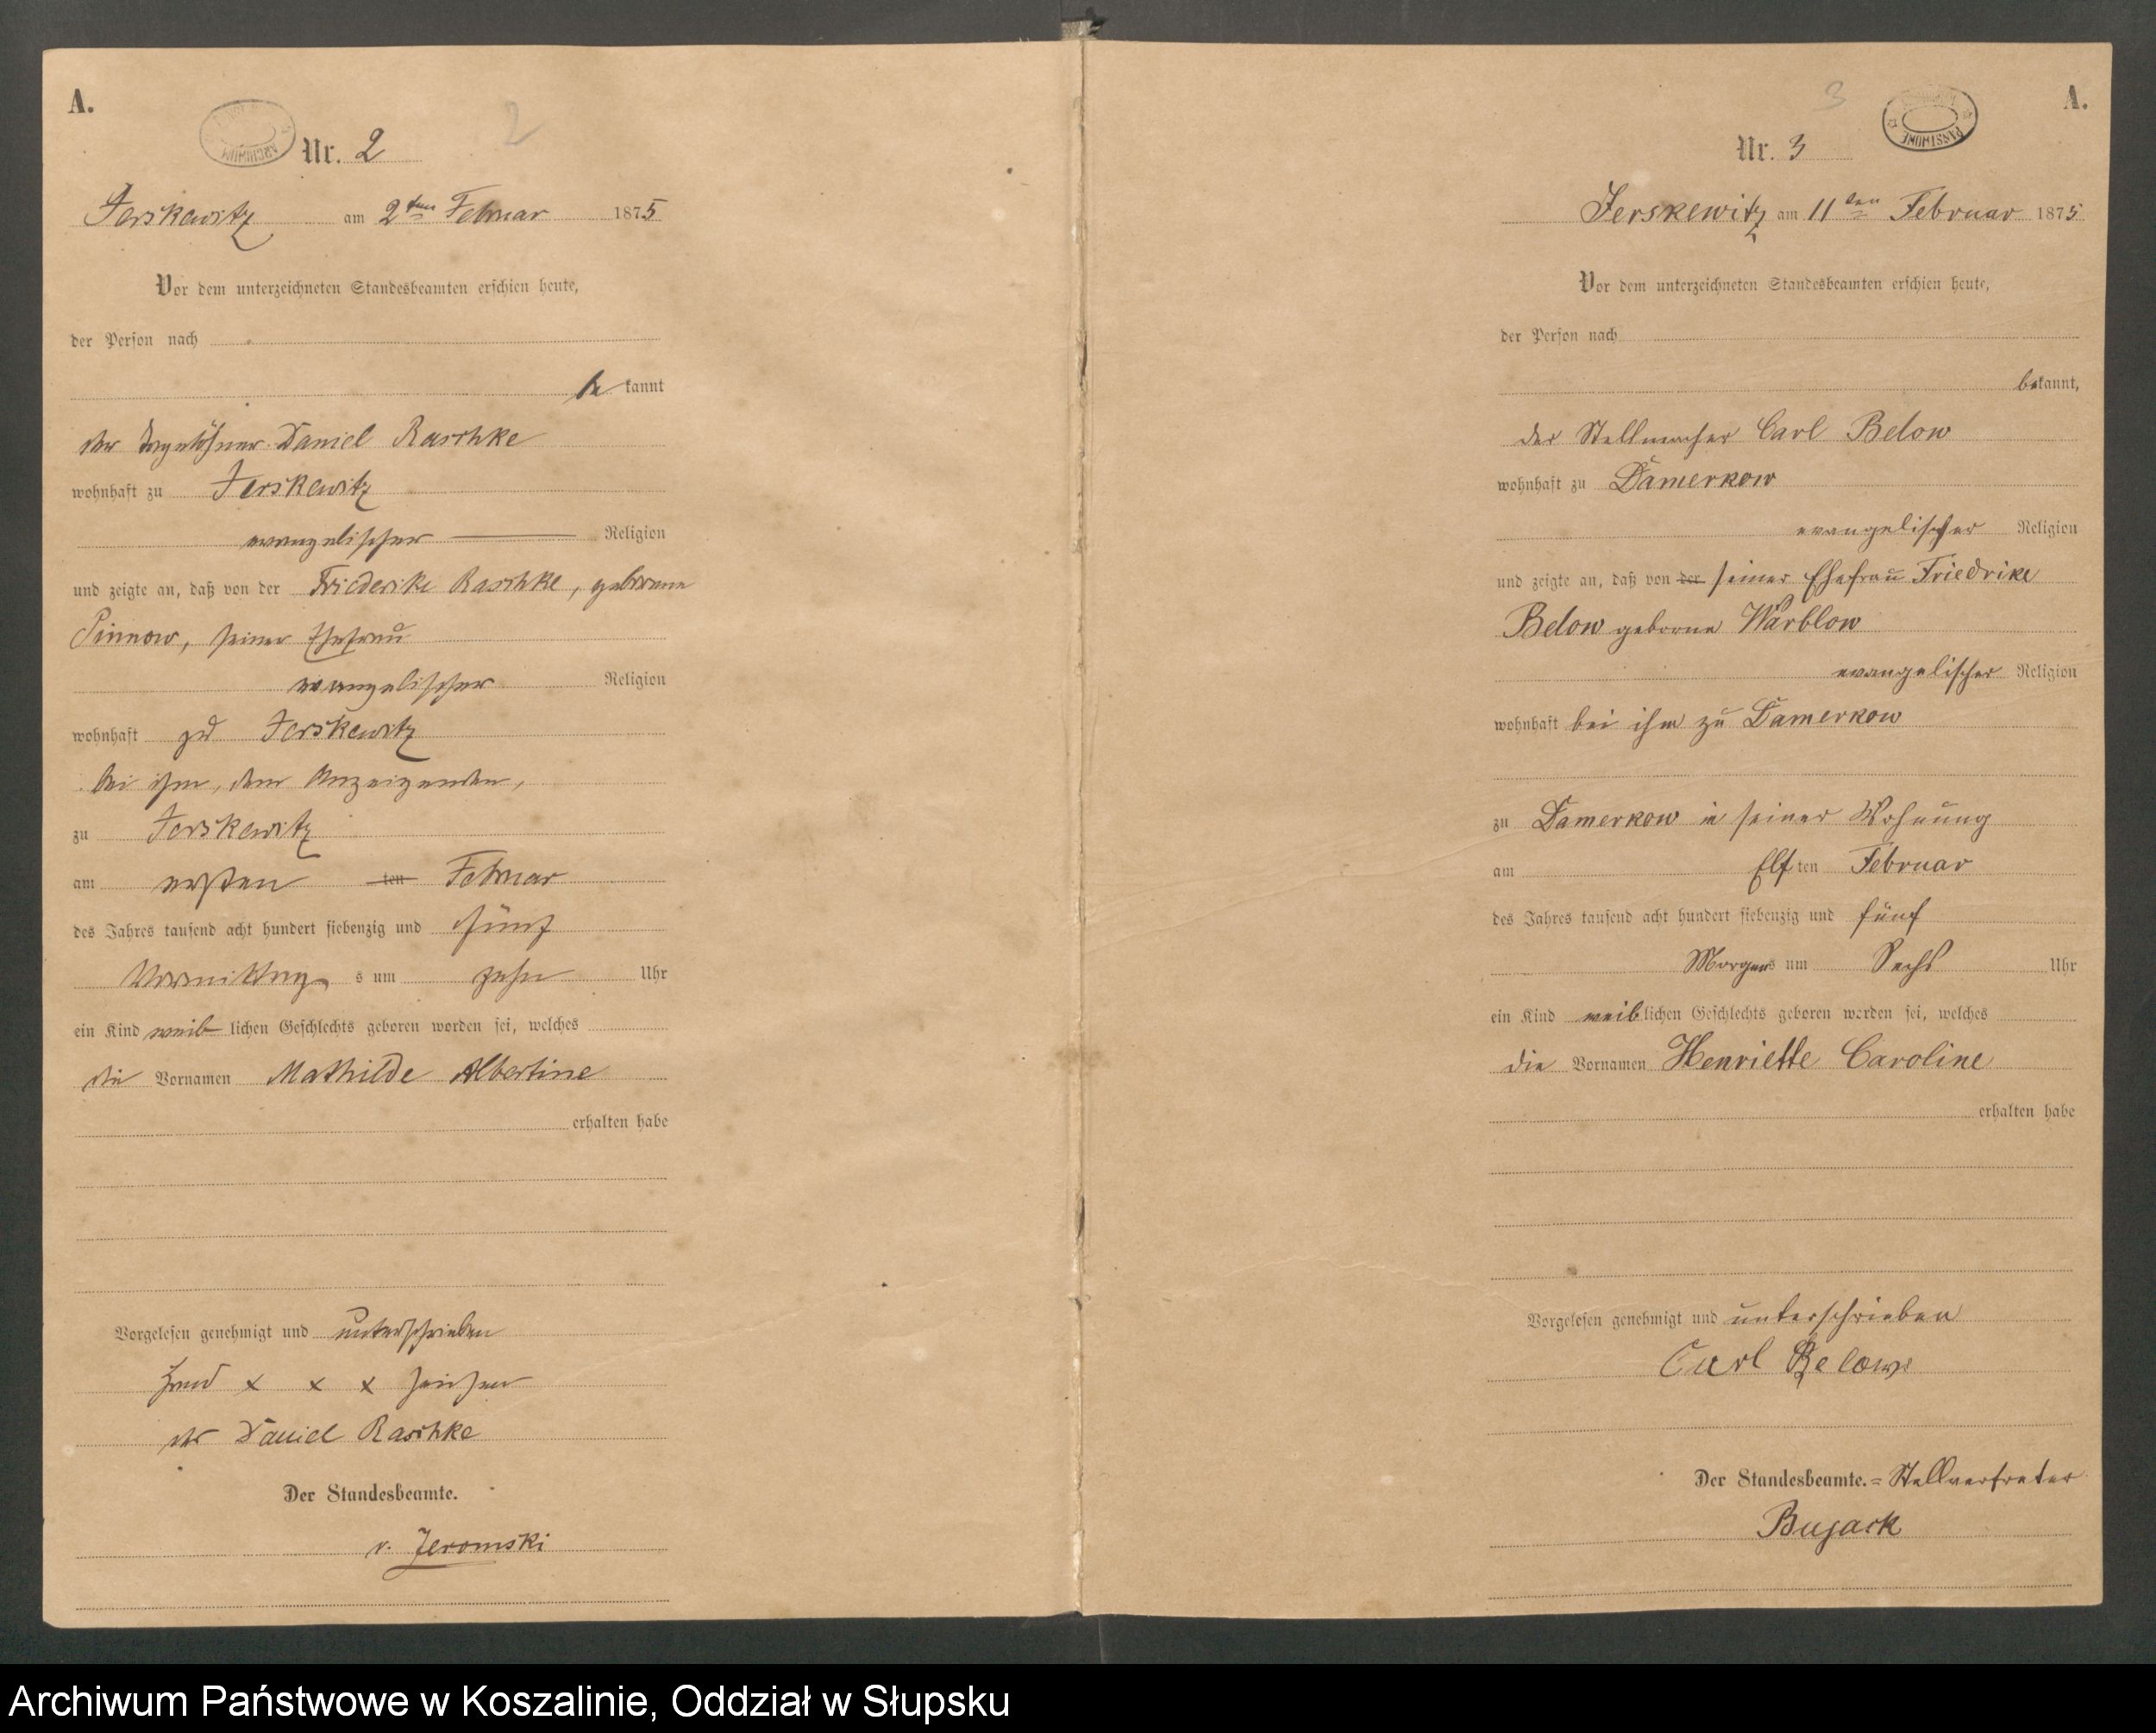 A.
Nr. 2
2
Jerskewitz am 2ten Februar 1875
Vor dem unterzeichneten Standesbeamten erschien heute,
der Person nach
be kannt
der Tagelöhner Daniel Raschke
wohnhaft zu Jerskewitz
evangelischer Religion
und zeigte an, daß von der Friederike Raschke, geborene
Pinnow, seiner Ehefrau
evangelischer Religion
wohnhaft zu Jerskewitz
bei ihm, dem Anzeigenden,
zu Jerskewitz
am ersten ten Februar
des Jahres tausend acht hundert siebenzig und fünf
Vormittag s um zehn Uhr
ein Kind weib lichen Geschlechts geboren worden sei, welches
die Vornamen Mathilde Albertine
erhalten habe
Vorgelesen genehmigt und unterschrieben
Hand x x x zeichen
des Daniel Raschke
Der Standesbeamte.
v. Jeromski
A.
3
Nr. 3
Jerskewitz am 11ten Februar 1875
Vor dem unterzeichneten Standesbeamten erschien heute,
der Person nach
bekannt,
der Stellmacher Carl Below
wohnhaft zu Damerkow
evangelischer Religion
und zeigte an, daß von der seiner Ehefrau Friedrike
Below geborne Warblow
evangelischer Religion
wohnhaft bei ihm zu Damerkow
zu Damerkow in seiner Wohnung
am Elf ten Februar
des Jahres tausend acht hundert siebenzig und fünf
Morgens um Sechs Uhr
ein Kind weiblichen Geschlechts geboren worden sei, welches
die Vornamen Henriette Caroline
erhalten habe
Vorgelesen genehmigt und unterschrieben
Carl Below
Der Standesbeamte. = Stellvertreter
Bujack
Archiwum Państwowe w Koszalinie, Oddział w Słupsku